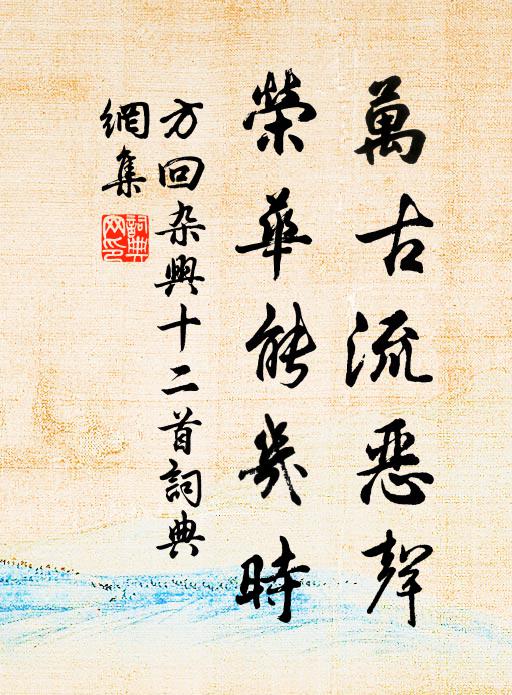 萬古流惡聲
榮華能幾時
方回杂興十二首詞典
網集
詞典網印